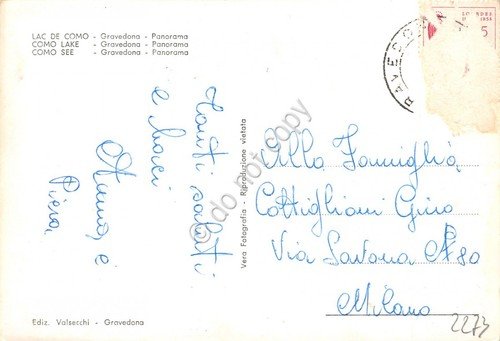 LAC DE COMO - Gravedona - Panorama
COMO LAKE - Gravedona - Panorama
COMO SEE - Gravedona - Panorama
Tanti saluti
e baci
Mamma, e
Piera
Vera Fotografia - Riproduzione vietata
do not copy
Alla Famiglia
Cottiglioni Gino
Via Savona
Milano
2273
Ediz. Valsecchi - Gravedona
5